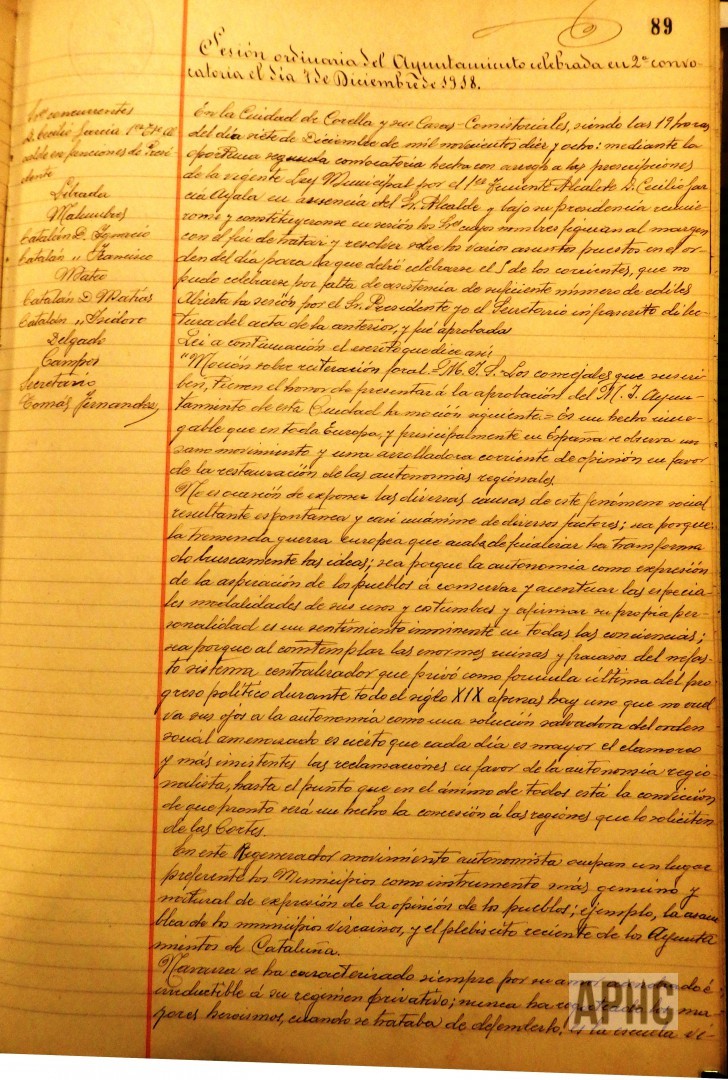 89
Sesión ordinaria del Ayuntamiento celebrada en 2ª convo-
catoria el día 7 de Diciembre de 1918.
Sres concurrentes
D. Cecilio García 1er Tte Al-
calde en funciones de Presi-
dente
Librada
Malumbres
Catalán D. Ignacio
Catalán " Francisco
Mateo
Catalán D. Matías
Catalán " Isidoro
Delgado
Campos
Secretario
Tomás Fernandez
En la Ciudad de Corella y sus Casas-Consistoriales, siendo las 19 horas
del día siete de Diciembre de mil novecientos diez y ocho: mediante la
oportuna segunda convocatoria hecha con arreglo a las prescripciones
de la vigente Ley Municipal por el 1er Teniente Alcalde D. Cecilio Gar-
cía Ayala en ausencia del Sr. Alcalde y bajo su presidencia reunie-
ronse y constituyeronse en sesión los Sres cuyos nombres figuran al margen
con el fin de tratar y resolver sobre los varios asuntos puestos en el or-
den del día para la que debió celebrarse el 5 de los corrientes, que no
pudo celebrarse por falta de asistencia de suficiente número de ediles
Abierta la sesión por el Sr. Presidente yo el Secretario infrascrito di lec-
tura del acta de la anterior, y fué aprobada
Leí a continuación el escrito que dice así
"Moción sobre reiteración foral.=M. I. S. Los concejales que suscri-
ben, tienen el honor de presentar á la aprobación del M. I. Ayun-
tamiento de esta Ciudad la moción siguiente.= Es un hecho inne-
gable que en toda Europa, y principalmente en España se observa un
sano movimiento y una arrolladora corriente de opinión en favor
de la restauración de las autonomías regionales.
No es cuasión de exponer las diversas causas de este fenómeno social
resultante espontanea y casi unánime de diversos factores; sea porque
la tremenda guerra europea que acaba de finalizar ha transforma-
do bruscamente las ideas; sea porque la autonomía como expresión
de la aspiración de los pueblos á conservar y acentuar las especia-
les modalidades de sus usos y costumbres y afirmar su propia per-
sonalidad es un sentimiento inminente en todas las conciencias;
sea porque al contemplar las enormes ruinas y fracasos del nefas-
to sistema centralizador que privó como formula ultima del pro-
greso político durante todo el siglo XIX apenas hay uno que no vuel-
va sus ojos a la autonomía como una solución salvadora del orden
social amenazado es cierto que cada día es mayor el clamoreo
y más insistentes las reclamaciones en favor de la autonomía regio-
nalista, hasta el punto que en el ánimo de todos está la convicción
de que pronto será un hecho la concesión á las regiones que lo soliciten
de las Cortes.
En este Regenerador movimiento autonomista ocupan un lugar
preferente los Municipios como instrumento más genuino y
natural de expresión de la opinión de los pueblos; ejemplo, la asam-
blea de los municipios vizcainos, y el plebiscito reciente de los Ayunta-
mientos de Cataluña.
Navarra se ha caracterizado siempre por su amor é
irreductible á su regimen privativo; nunca ha los ma-
yores heroismos, cuando se trataba de defenderlo. Es la escuela vi-
APHC